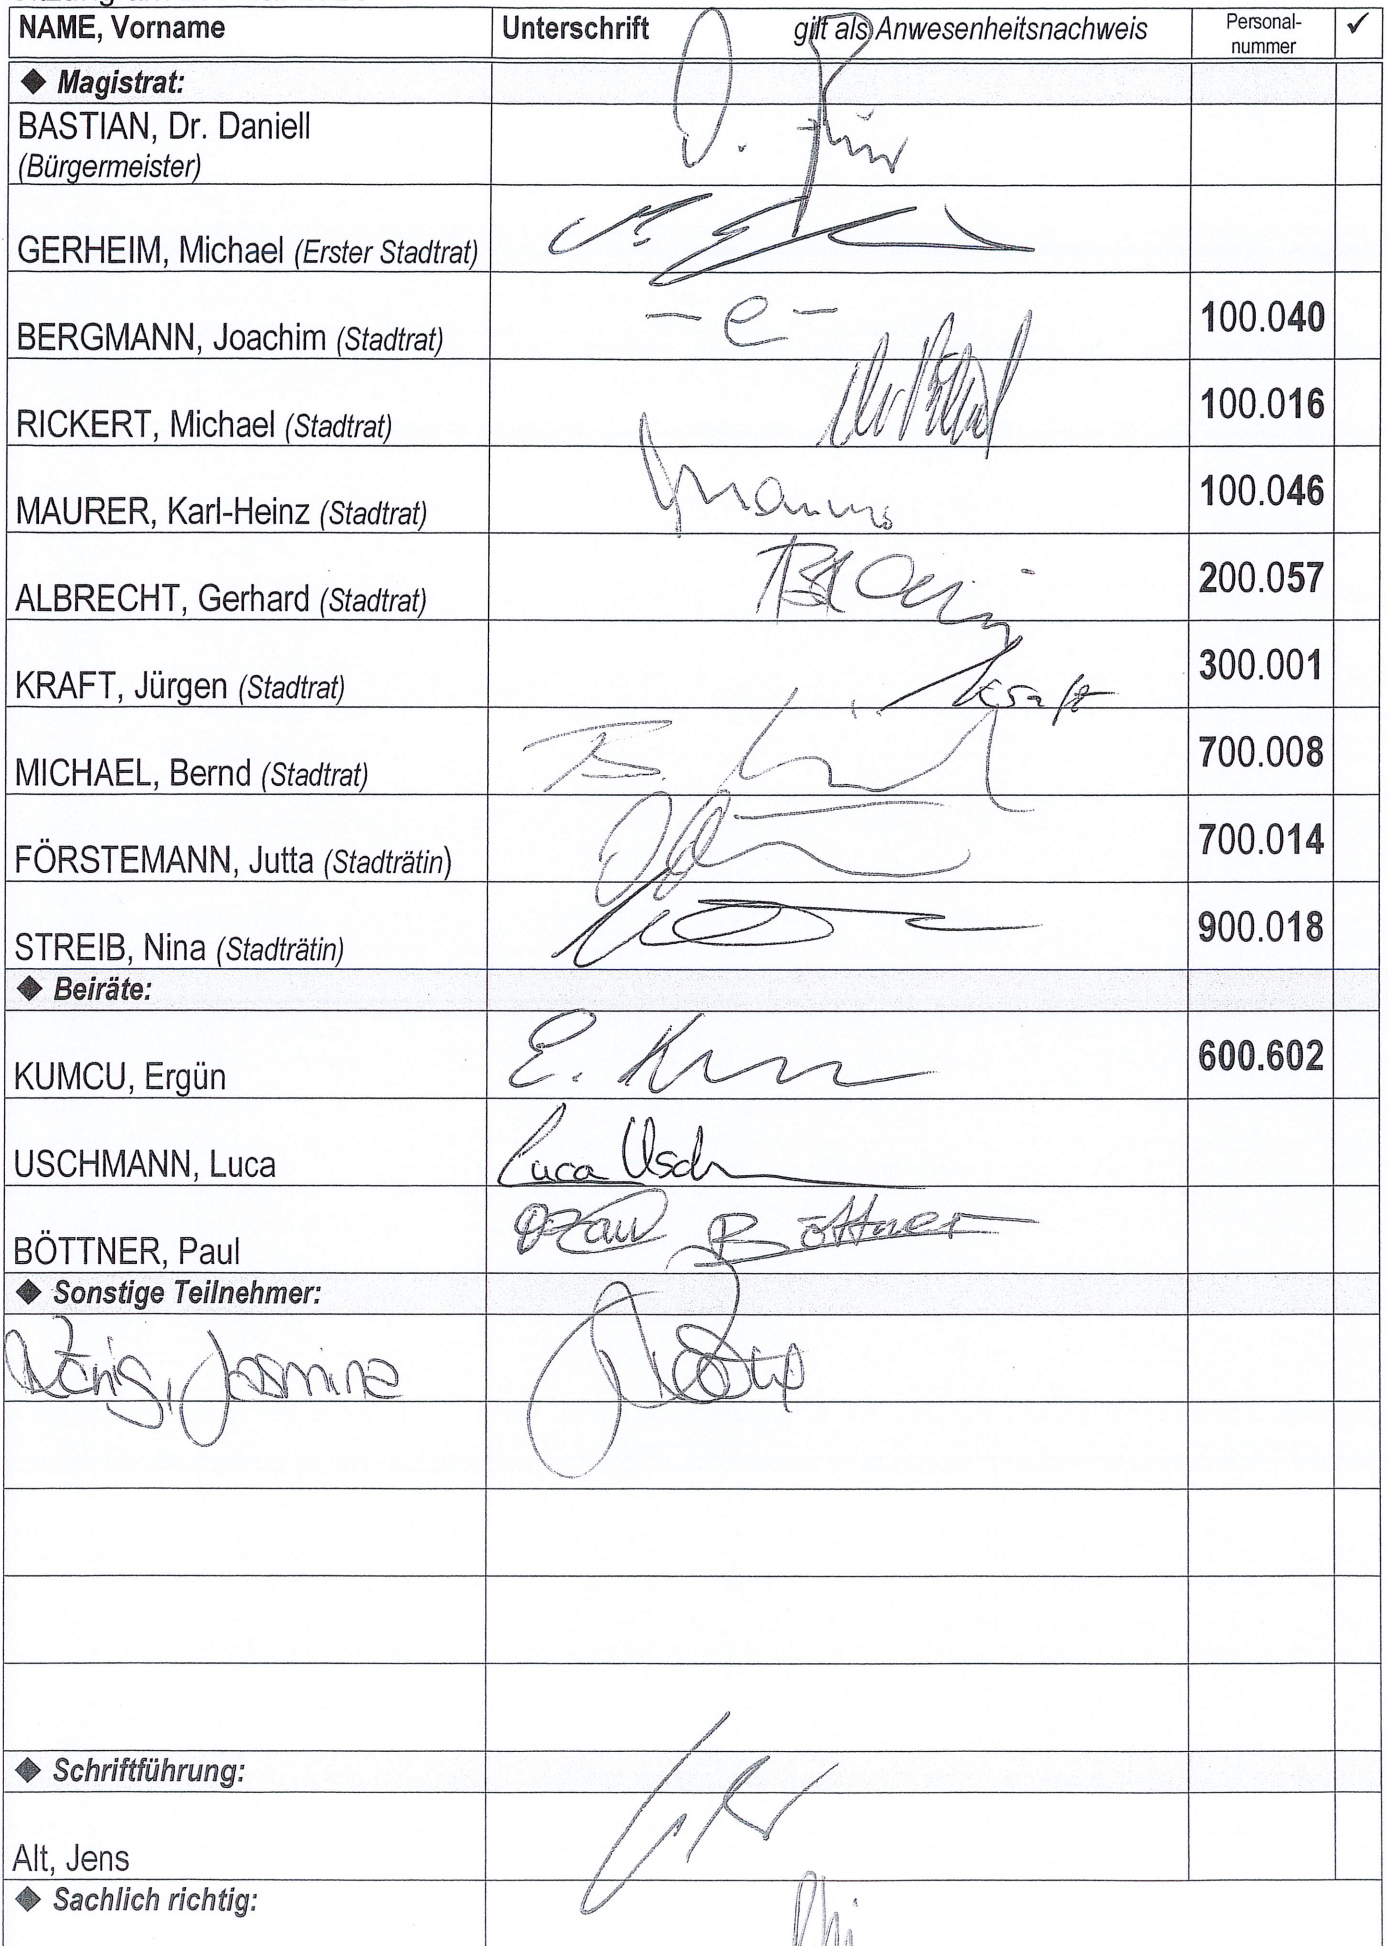 NAME, Vorname Unterschrift gilt als Anwesenheitsnachweis Personal-
nummer ✓
◆ Magistrat:
BASTIAN, Dr. Daniell
(Bürgermeister)
GERHEIM, Michael (Erster Stadtrat)
BERGMANN, Joachim (Stadtrat) – e – 100.040
RICKERT, Michael (Stadtrat) 100.016
MAURER, Karl-Heinz (Stadtrat) 100.046
ALBRECHT, Gerhard (Stadtrat) 200.057
KRAFT, Jürgen (Stadtrat) Kraft 300.001
MICHAEL, Bernd (Stadtrat) 700.008
FÖRSTEMANN, Jutta (Stadträtin) 700.014
STREIB, Nina (Stadträtin) 900.018
◆ Beiräte:
KUMCU, Ergün E. 600.602
USCHMANN, Luca Luca
BÖTTNER, Paul Paul Böttner
◆ Sonstige Teilnehmer:
König, Jasmina
◆ Schriftführung:
Alt, Jens
◆ Sachlich richtig: